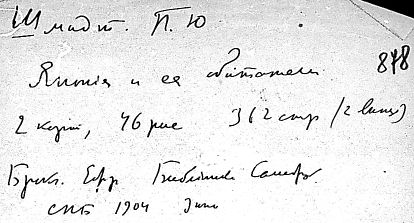 Шмидт. П. Ю
Япония и ее обитатели. 878
2 карт, 46 рис 362 стр (2 выпуск)
Брок. Ефр Библиотека Саморазв
СПБ 1904